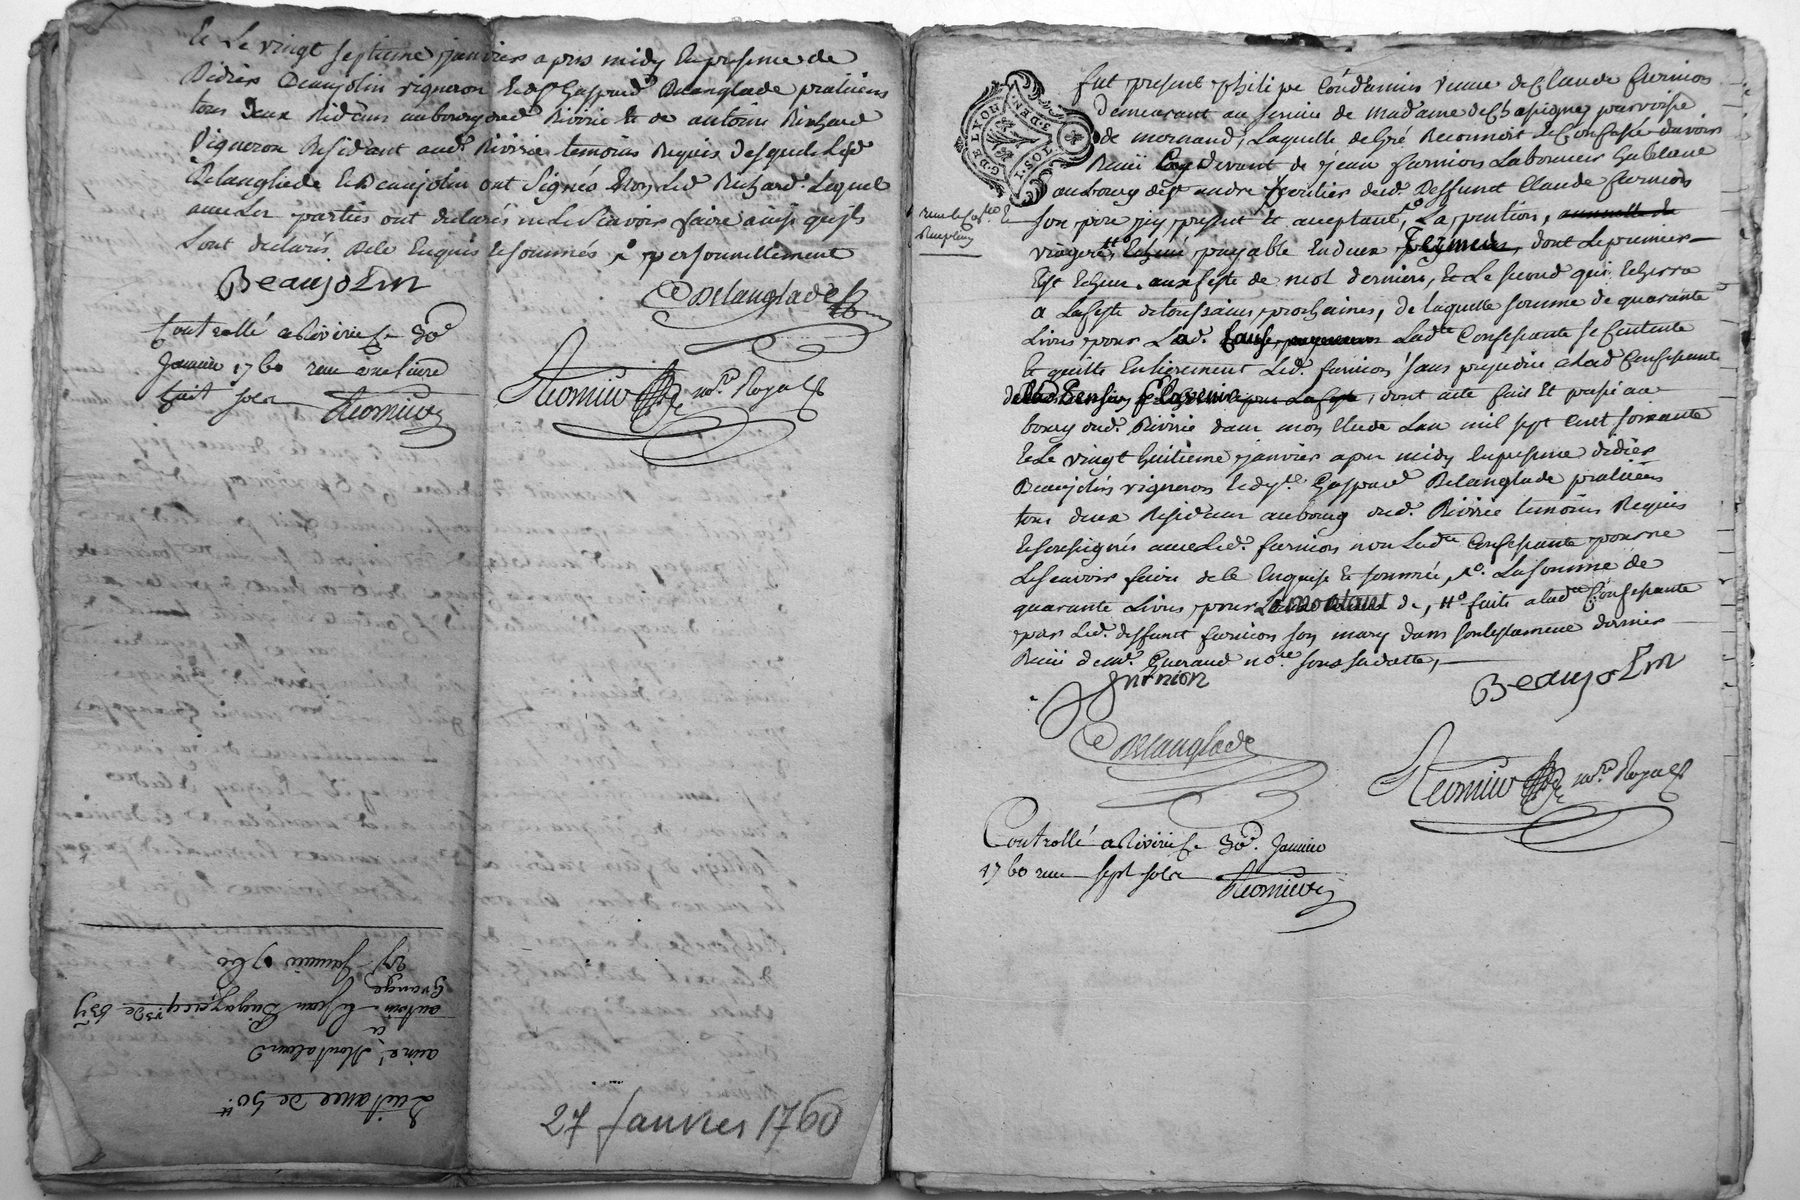 Et Le vingt septieme janvier apres midy En presence de
Didier Beaujolin vigneron Gaspard Delanglade praticiens
tous deux Residens au bourg dud. Riverie Et de antoine Richard
Vigneron Residant aud. Riverie temoins Requis desquels Led.
Delanglade Et Beaujolin ont Signés Non Led. Richard Lequel
avec Les parties ont declarés ne Le Scavoir faire ainsi quils
Lont declaré de ce Enquis Et sommés personnellement
BeaujoLin
Delanglade
Controllé a Riverie Le 30e
Janvier 1760 reçu
huit sols
nore Royal
Quittance de 50 tt
ainé Montaland
a
antoine Et Jean
Grange
27 Janvier 1760
27 Janvier 1760
G. DE LYON
fut present philipe Condamin veuve de Claude furnion
demeurant au service de Madame de Chaspigne parroisse
de mornand, Laquelle de Gré Reconnoit Et Confesse avoir
Reçu Cy devant de jean furnion Laboureur habitant
au bourg de St andre heritier dud. Deffunt Claude furnion
son pere icy present Et acceptant, La pention,
viagere payable En deux termes, dont Le premier
Est Echeu aux feste de noel dernier, Et Le second qui Echerra
a La feste de toussains prochaines, de laquelle somme de quarante
Livres pour Lad. Ladte Confessante se Contente
Et quitte Entierement Led. furnion sans prejudice a Lad Confessante
de La Pension a Lavenir, dont acte fait Et passé au
bourg dud. Riverie dans mon Etude Lan mil sept Cent soixante
Et Le vingt huitieme janvier apres midy En presence didier
Beaujolin vigneron Gaspard Delanglade praticien
tous deux Residens au bourg dud. Riverie temoins Requis
Et soussignés avec Led. furnion non Ladte Confessante pour ne
Le scavoir faire de ce Enquise Et sommée, La somme de
quarante Livres pour Le montant de, faite a ladte Confessante
par Led. deffunt furnion son mary dans son testament dernier
Reçu de me. Gueraud nore sous sa datte,
furnion
BeaujoLin
Delanglade
nore Royal
Controllé a Riverie Le 30e. Janvier
1760 reçu sept sols